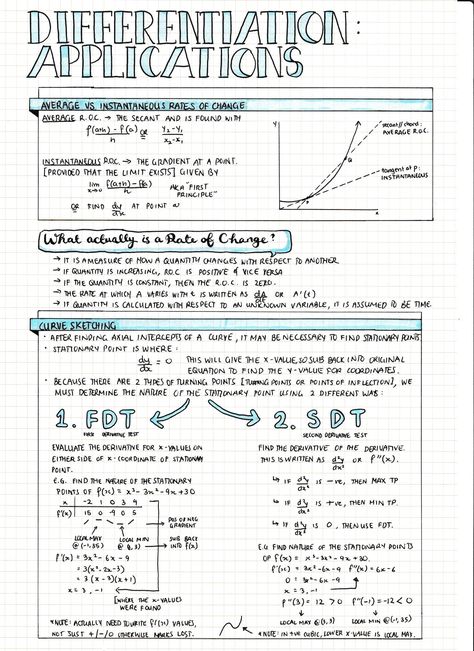 DIFFERENTIATION:
APPLICATIONS
AVERAGE VS INSTANTANEOUS RATES OF CHANGE
AVERAGE R.O.C. → THE SECANT AND IS FOUND WITH
f(a+h) - f(a) / h OR y₂-y₁ / x₂-x₁
INSTANTANEOUS R.O.C. → THE GRADIENT AT A POINT.
[PROVIDED THAT THE LIMIT EXISTS] GIVEN BY
lim x→0 f(a+h) - f(a) / h AKA "FIRST
PRINCIPLE"
OR FIND dy/dx AT POINT a
secant/chord:
AVERAGE R.O.C.
Q
tangent at P:
INSTANTANEOUS
P
x
What actually is a Rate of Change?
→ IT IS A MEASURE OF HOW A QUANTITY CHANGES WITH RESPECT TO ANOTHER
→ IF QUANTITY IS INCREASING, R.O.C IS POSITIVE & VICE VERSA
→ IF THE QUANTITY IS CONSTANT, THEN THE R.O.C. IS ZERO.
→ THE RATE AT WHICH A VARIES WITH t IS WRITTEN AS dA/dt OR A'(t)
→ IF QUANTITY IS CALCULATED WITH RESPECT TO AN UNKNOWN VARIABLE, IT IS ASSUMED TO BE TIME.
CURVE SKETCHING
• AFTER FINDING AXIAL INTERCEPTS OF A CURVE, IT MAY BE NECESSARY TO FIND STATIONARY POINTS.
• STATIONARY POINT IS WHERE:
dy/dx = 0 THIS WILL GIVE THE X-VALUE, SO SUB BACK INTO ORIGINAL
EQUATION TO FIND THE Y-VALUE FOR COORDINATES.
• BECAUSE THERE ARE 2 TYPES OF TURNING POINTS [TURNING POINTS OR POINTS OF INFLECTION], WE
MUST DETERMINE THE NATURE OF THE STATIONARY POINT USING 2 DIFFERENT WAYS:
1. FDT
FIRST DERIVATIVE TEST
EVALUATE THE DERIVATIVE FOR X-VALUES ON
EITHER SIDE OF X-COORDINATE OF STATIONARY
POINT.
E.G. FIND THE NATURE OF THE STATIONARY
POINTS OF f(x) = x³-3x²-9x+30
x -2 -1 0 3 4
f'(x) 15 0 -9 0 15
POS OR NEG
GRADIENT
LOCAL MAX
@ (-1,35)
LOCAL MIN
@ (3,3)
SUB BACK
INTO f(x)
f'(x) = 3x²-6x-9
= 3(x²-2x-3)
= 3(x-3)(x+1)
x = 3, -1
[WHERE THE X-VALUES
WERE FOUND
*NOTE: ACTUALLY NEED TO WRITE f'(x) VALUES,
NOT JUST +/-/0 OTHERWISE MARKS LOST.
2. SDT
SECOND DERIVATIVE TEST
FIND THE DERIVATIVE OF THE DERIVATIVE.
THIS IS WRITTEN AS d²y/dx² OR f''(x).
↳ IF d²y/dx² IS -ve, THEN MAX TP
↳ IF d²y/dx² IS +ve, THEN MIN TP.
↳ IF d²y/dx² IS 0, THEN USE FDT.
E.G FIND NATURE OF THE STATIONARY POINTS
OF f(x) = x³-3x²-9x+30.
f'(x) = 3x²-6x-9 f''(x) = 6x-6
0 = 3x²-6x-9
x = 3, -1
f''(3) = 12 > 0 f''(-1) = -12 < 0
LOCAL MIN @ (-1,35)
*NOTE: IN +VE CUBIC, LOWER X-VALUE IS LOCAL MAX.